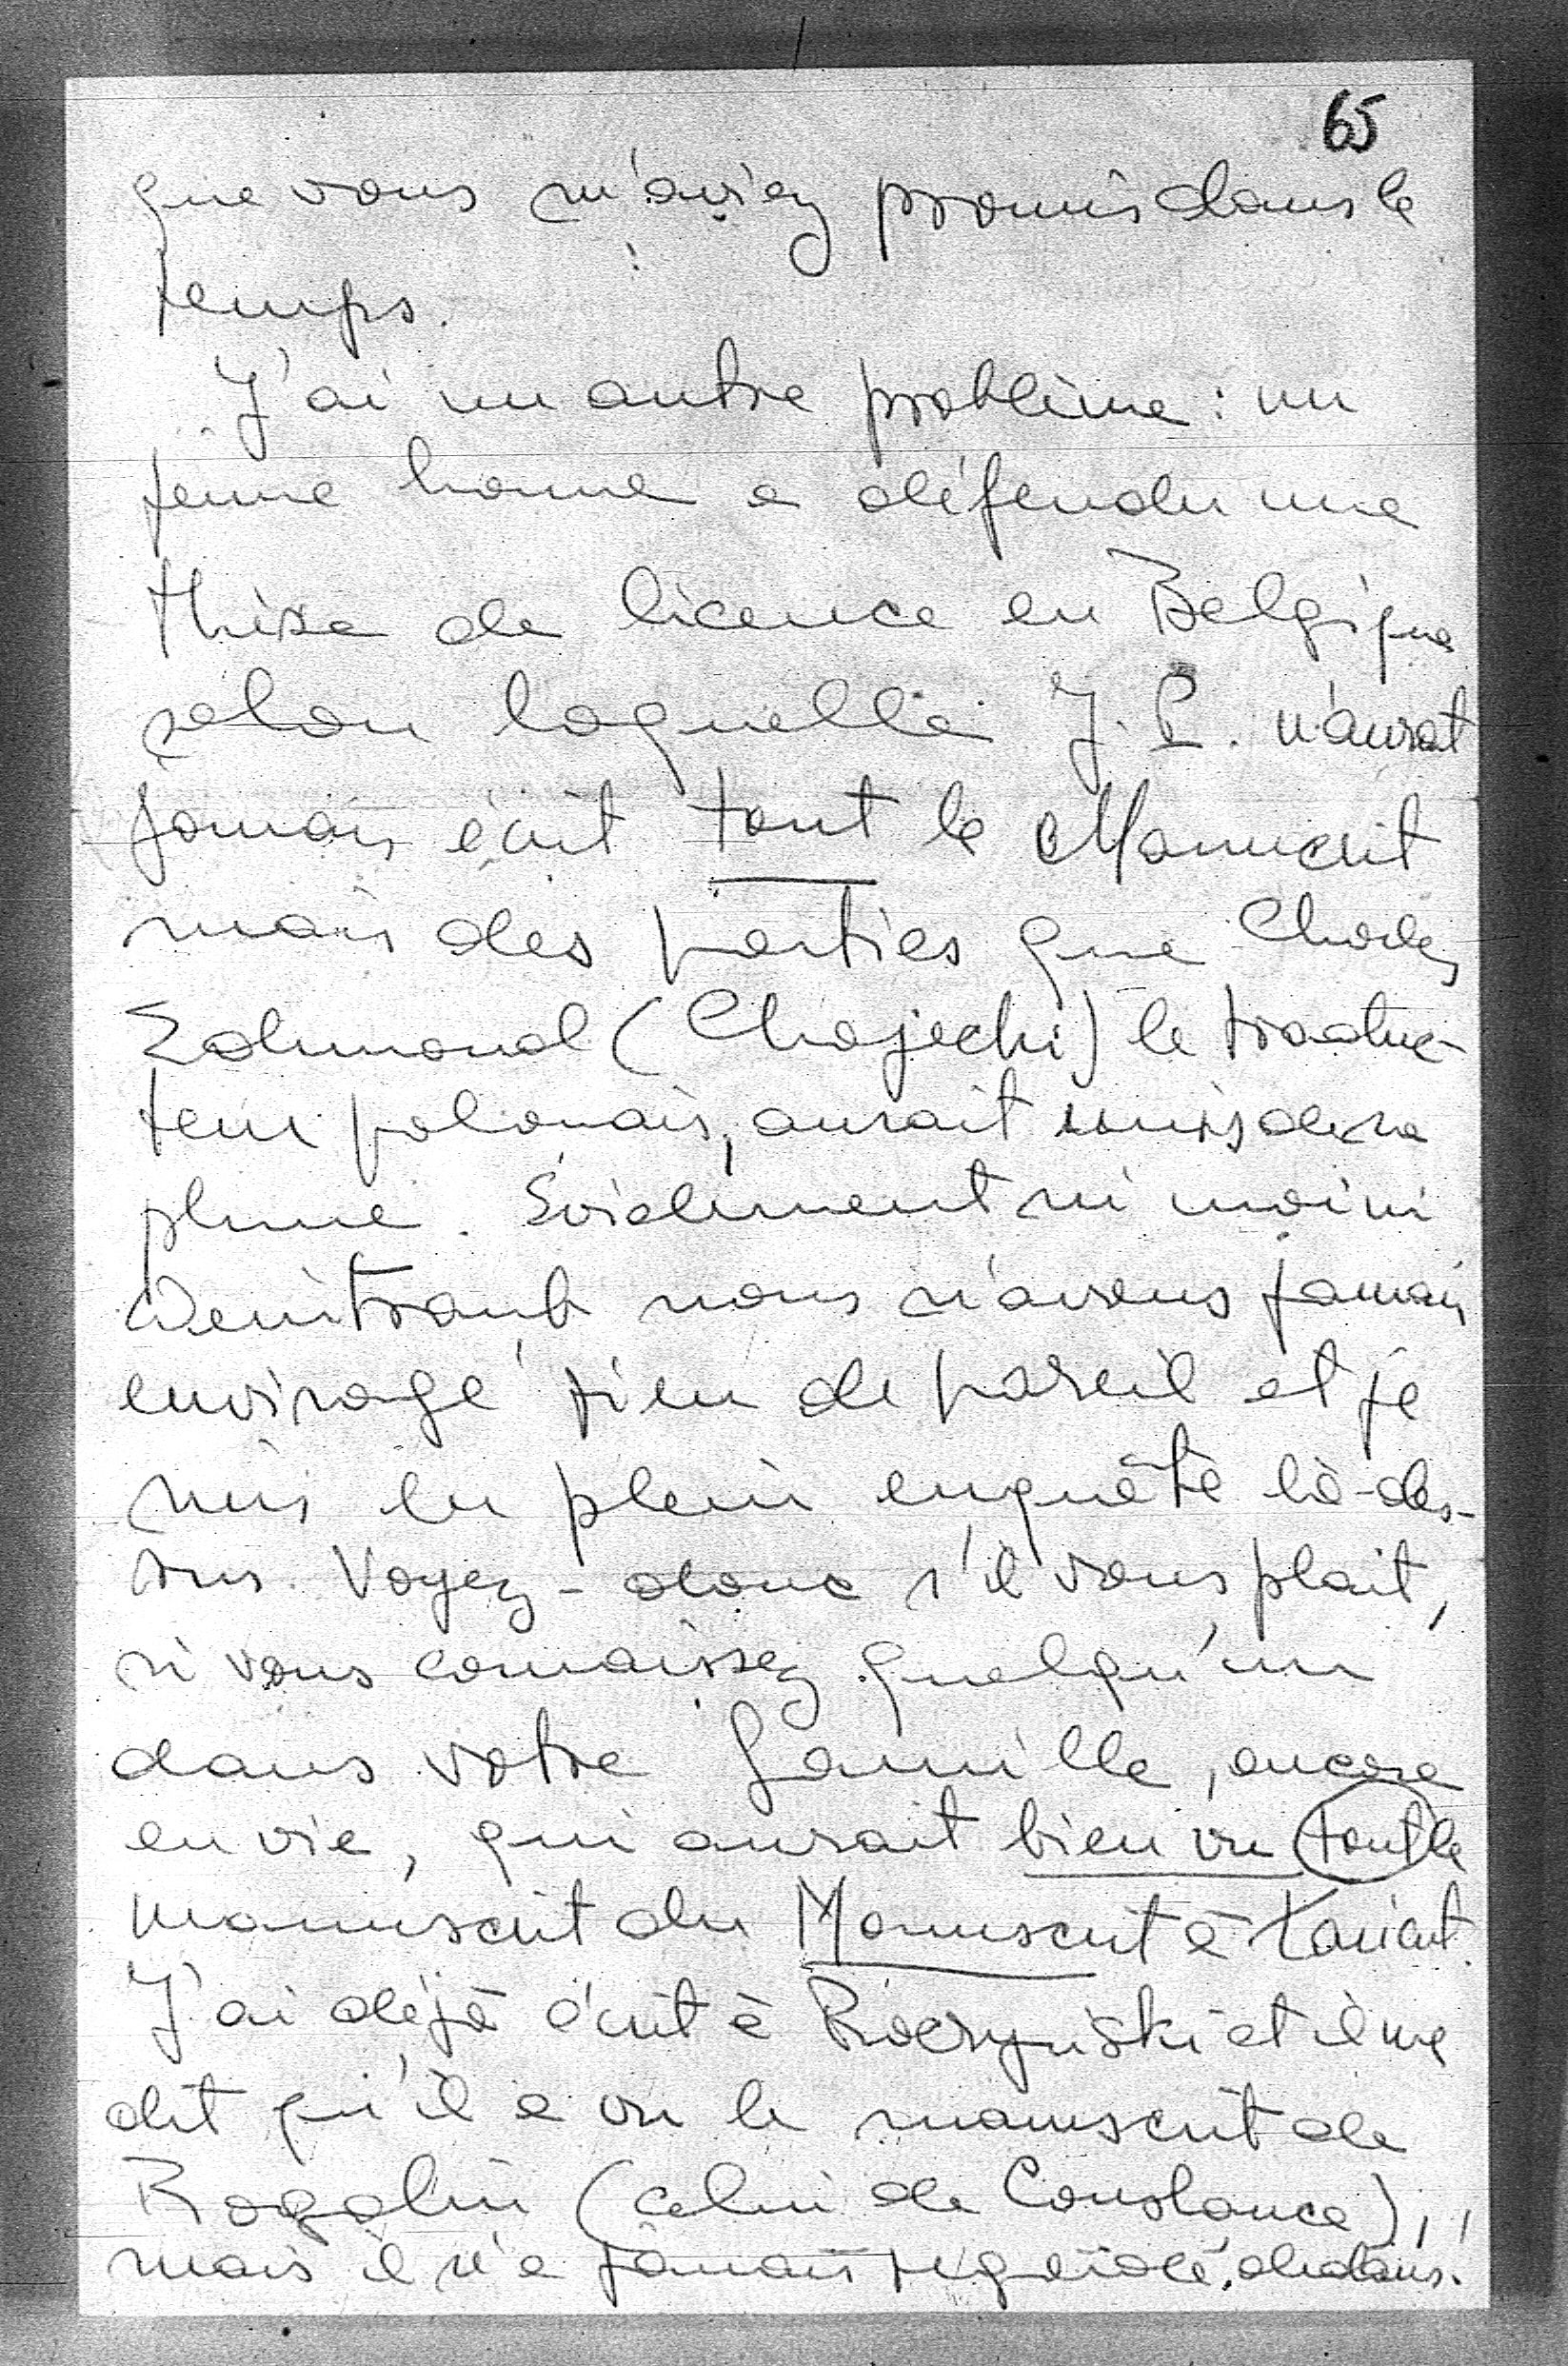 65
que vous m'aviez promis dans le
temps.
J'ai un autre problème : un
jeune homme a défendu une
thèse de licence en Belgique
selon laquelle J. P. n'aurait
jamais écrit tout le Manuscrit
mais des parties que Charles
Edmond (Chojecki) le traduc-
teur polonais, aurait unis de sa
plume. Evidemment ni moi ni
Weintraub nous n'avons jamais
envisagé rien de pareil et je
suis en plein enquête là-des-
sus. Voyez-donc s'il vous plait,
si vous connaissez quelqu'un
dans votre famille, encore
en vie, qui aurait bien vu tout le
manuscrit du Manuscrit à Łańcut.
J'ai déjà écrit à Raczyński et il me
dit qu'il a vu le manuscrit de
Rogalin (celui de Constance),
mais il n'a jamais regardé dedans.